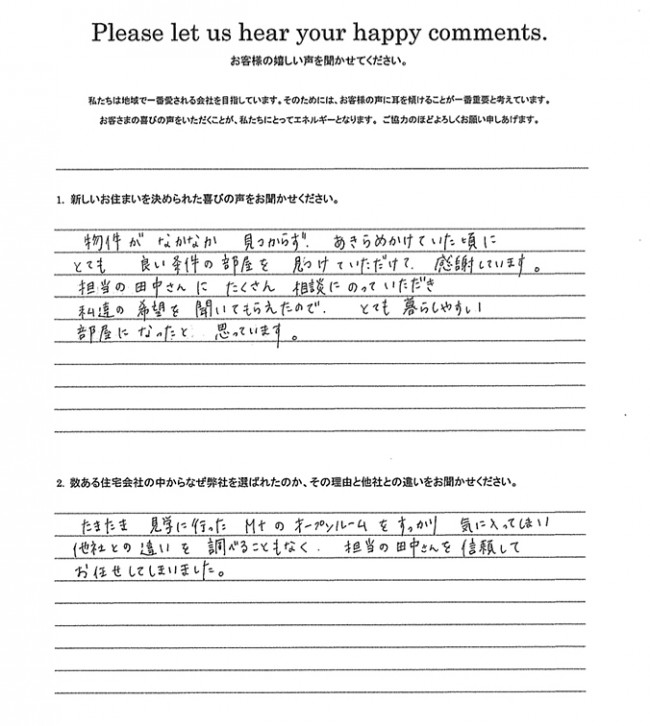 Please let us hear your happy comments.
お客様の嬉しい声を聞かせてください。
私たちは地域で一番愛される会社を目指しています。そのためには、お客様の声に耳を傾けることが一番重要と考えています。
お客さまの喜びの声をいただくことが、私たちにとってエネルギーとなります。ご協力のほどよろしくお願い申しあげます。
1. 新しいお住まいを決められた喜びの声をお聞かせください。
物件が なかなか 見つからず、あきらめかけていた頃に
とても 良い条件の部屋を 見つけていただけて、感謝しています。
担当の田中さんに たくさん 相談にのっていただき
私達の希望を聞いてもらえたので、 とても暮らしやすい
部屋になったと 思っています。
2. 数ある住宅会社の中からなぜ弊社を選ばれたのか、その理由と他社との違いをお聞かせください。
たまたま 見学に行った M+のオープンルームをすっかり 気に入ってしまい
他社との違いを調べることもなく、 担当の田中さんを信頼して
お任せしてしまいました。